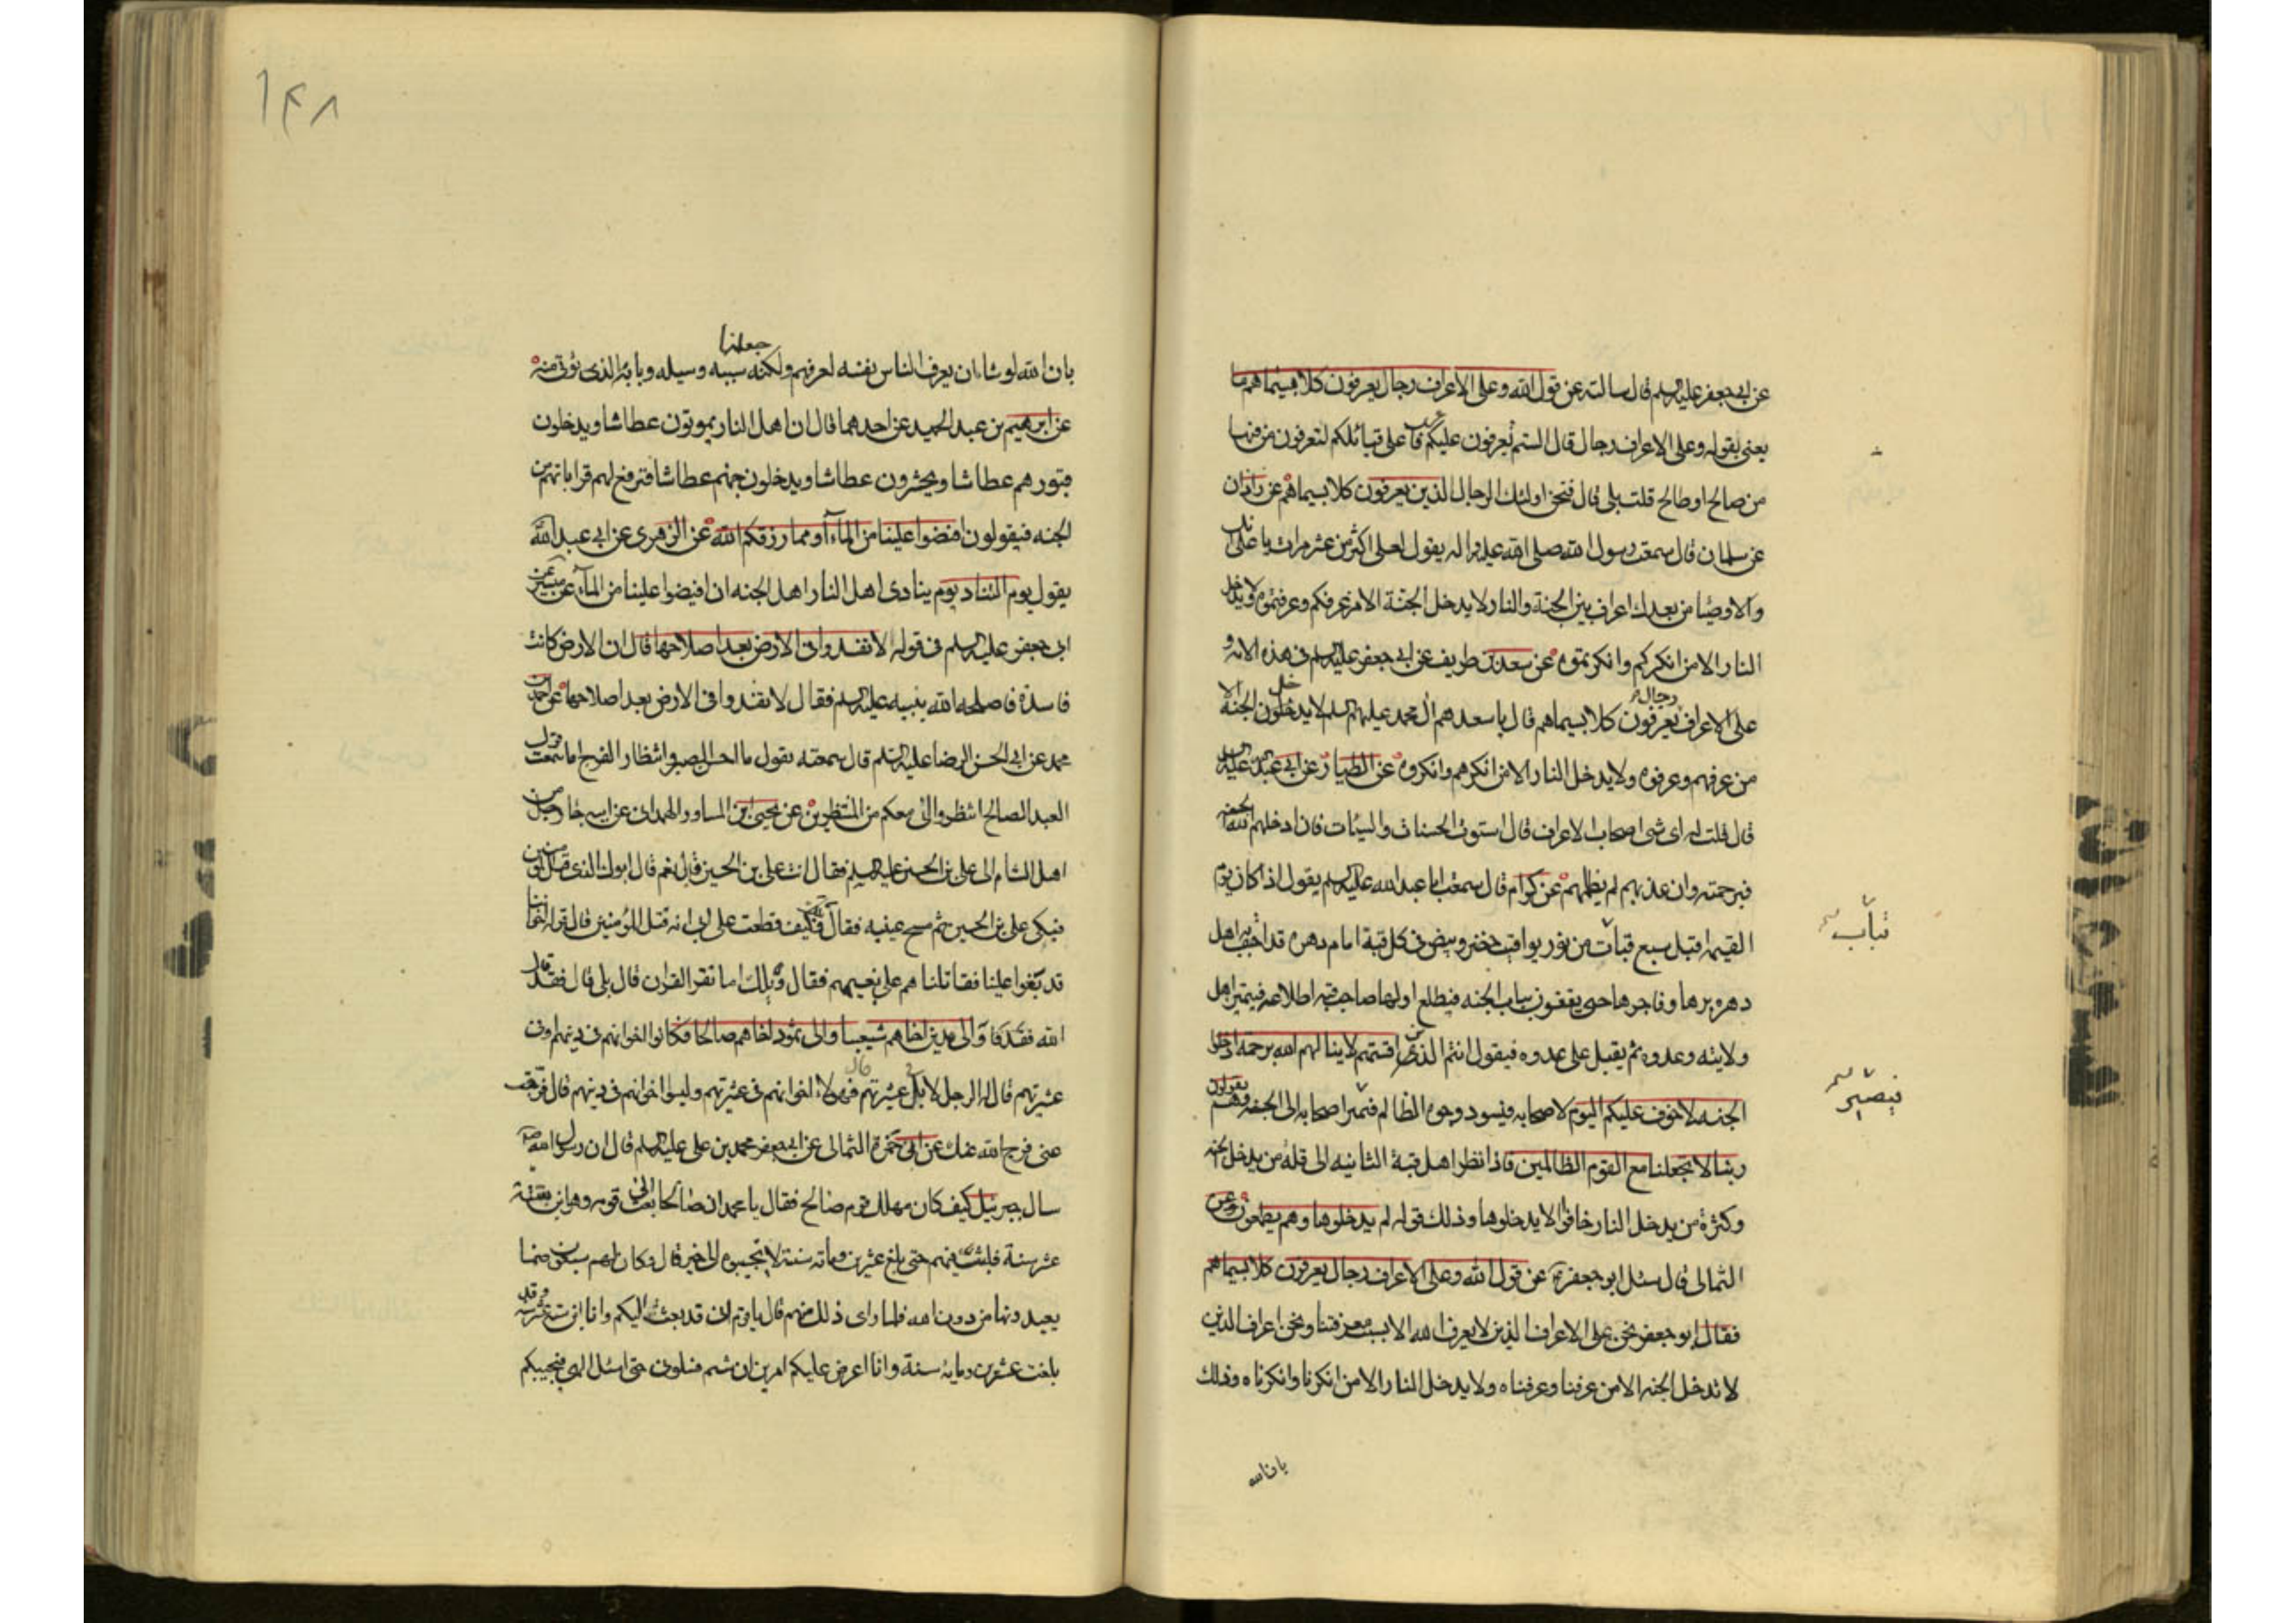 عن ابى جعفر عليه السلم قال سالته عن قول الله وعلى الاعراف رجال يعرفون كلا بسيماهم ما
يعنى بقوله وعلى الاعراف رجال قال الستم تعرفون عليكم عريف على قبائلكم لتعرفون من فيها
من صالح او طالح قلت بلى قال فنحن اولئك الرجال الذين يعرفون كلا بسيماهم عن زاذان
عن سلمان قال سمعت رسول الله صلى الله عليه واله يقول لعلى اكثر من عشر مرات يا على انك
والاوصيا من بعدك اعراف بين الجنة والنار لا يدخل الجنة الا من عرفكم وعرفتموه ولا يدخل
النار الا من انكركم وانكرتموه عن سعد بن طريف عن ابى جعفر عليه السلم فى هذه الايه و
على الاعراف رجال يعرفون كلا بسيماهم قال يا سعد هم آل محمد عليهم السلم لا يدخل الجنة الا
من عرفهم وعرفوه ولا يدخل النار الا من انكرهم وانكروه عن الطيار عن ابى عبد الله عليه السلم
قال قلت له اى شى اصحاب الاعراف قال استوت الحسنات والسيئات فان ادخلهم الله الجنة
فبرحمته وان عذبهم لم يظلمهم عن كرام قال سمعت ابا عبد الله عليه السلم يقول اذا كان يوم
القيمه اقبل سبع قبات من نور يواقيت خضر وبيض فى كل قبة امام دهره قد احتف به اهل
قباب
دهره برها وفاجرها حتى يقفون بباب الجنه فيطلع اولها صاحب قبه اطلاعه فيتميز اهل
ولايته وعدوه ثم يقبل على عدوه فيقول انتم الذين اقسمتم لا ينالهم الله برحمه ادخلوا
الجنه لا خوف عليكم اليوم لاصحابه فيسود وجوه الظالم فتميز اصحابه الى الجنه وهم يقولون
فيصير
ربنا لا تجعلنا مع القوم الظالمين فاذا نظر اهل قبة الثانيه الى قلة من يدخل الجنه
وكثرة من يدخل النار خافوا الا يدخلوها وذلك قوله لم يدخلوها وهم يطمعون وعن
الثمالى قال سئل ابو جعفر عن قول الله وعلى الاعراف رجال يعرفون كلا بسيماهم
فقال ابو جعفر نحن على الاعراف الذين لا يعرف الله الا بسبب معرفتنا ونحن اعراف الذين
لا تدخل الجنه الا من عرفنا وعرفناه ولا يدخل النار الا من انكرنا وانكرناه وذلك
بان الله
١٤٨
جعلنا
بان الله لو شاء ان يعرف الناس نفسه لعرفهم ولكنه سببه وسيله وبابه الذى يؤتى منه
عن ابرهيم بن عبد الحميد عن احدهما قال ان اهل النار يموتون عطاشا ويدخلون
قبورهم عطاشا ويحشرون عطاشا ويدخلون جهنم عطاشا فترفع لهم قراباتهم من
الجنه فيقولون افيضوا علينا من المآء او مما رزقكم الله عن الزهرى عن ابى عبد الله
يقول يوم التناد يوم ينادى اهل النار اهل الجنه ان افيضوا علينا من المآء عن ميسر عن
ابى جعفر عليه السلم فى قوله لا تفسدوا فى الارض بعد اصلاحها قال ان الارض كانت
فاسدة فاصلحه الله بنبيه عليه السلم فقال لا تفسدوا فى الارض بعد اصلاحها عن احمد بن
محمد عن ابى الحسن الرضا عليه السلم قال سمعته يقول ما احسن الصبر وانتظار الفرج اما سمعت قول
العبد الصالح انتظروا انى معكم من المنتظرين عن يحيى بن المساور الهمدانى عن ابيه جا رجل من
اهل الشام الى على بن الحسين عليه السلم فقال انت على بن الحسين قال نعم قال ابوك الذى قتل المؤمنين
فبكى على بن الحسين ثم مسح عينيه فقال كيف قطعت على ابى انه قتل المؤمنين قال قوله اخواننا
قد بغوا علينا فقاتلناهم على بغيهم فقال ويلك اما تقرا القران قال بلى قال فقد قال
الله والى مدين اخاهم شعيبا والى ثمود اخاهم صالحا فكانوا اخوانهم فى دينهم او فى
عشيرتهم قال له الرجل لا بل فى عشيرتهم قال فهولاء اخوانهم فى عشيرتهم وليسوا اخوانهم فى دينهم قال فرجت
عنى فرج الله عنك عن ابى حمزة الثمالى عن ابى جعفر محمد بن على عليه السلم قال ان رسول الله
سال جبرئيل كيف كان مهلك قوم صالح فقال يا محمد ان صالحا بعث الى قومه وهو ابن ستة
عشر سنة فلبث فيهم حتى بلغ عشرين ومائه سنة لا تجيبوه الى خير قال وكان لهم سبعون صنما
يعبدونها من دون الله فلما راى ذلك منهم قال يا قوم انى قد بعثت اليكم وانا ابن ست عشر سنه وقد
بلغت عشرين ومايه سنة وانا اعرض عليكم امرين ان شئتم فسلونى حتى اسئل الهى فيجيبكم